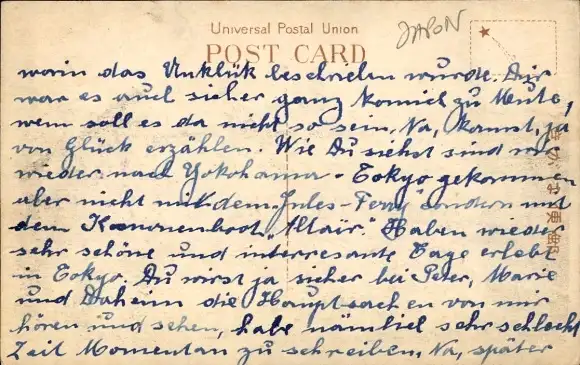 Universal Postal Union
JAPON
POST CARD
worin das Unklük beschrieben wurde. Dir
war es auch sicher ganz komich zu Mute,
wem soll es da nicht so sein, Na, kannst ja
von Glück erzählen. Wie Du siehst sind wir
wieder nach Yokohama - Tokyo gekommen
aber nicht mit dem „Jules-Ferry" sondern mit
dem Kanonenboot „Altair." Haben wieder
sehr schöne und interresante Tage erlebt
in Tokyo. Du wirst ja sicher bei Peter, Marie
und Daheim die Hauptsachen von mir
hören und sehen, habe nämlich sehr schlecht
Zeit Momentan zu schreiben, Na, später